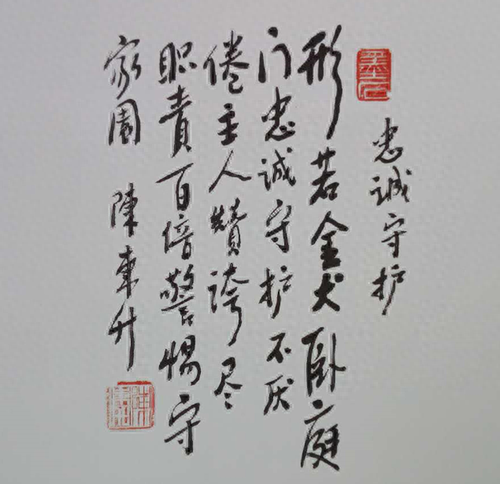 忠诚守护
形若金犬卧庭
门忠诚守护不厌
倦主人赞誇尽
职责百倍警惕守
家園 陳東升